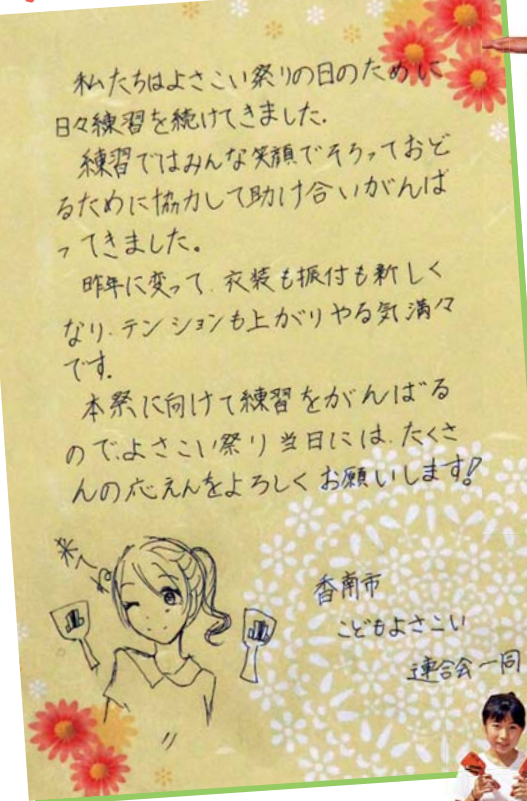 私たちはよさこい祭りの日のために
日々練習を続けてきました.
練習ではみんな笑顔でそろっておど
るために協力して助け合いがんば
ってきました。
昨年に変って、衣装も振付も新しく
なり、テンションも上がりやる気満々
です。
本祭に向けて練習をがんばる
ので、よさこい祭り当日には、たくさ
んの応えんをよろしくお願いします!
香南市
こどもよさこい
連合会一同